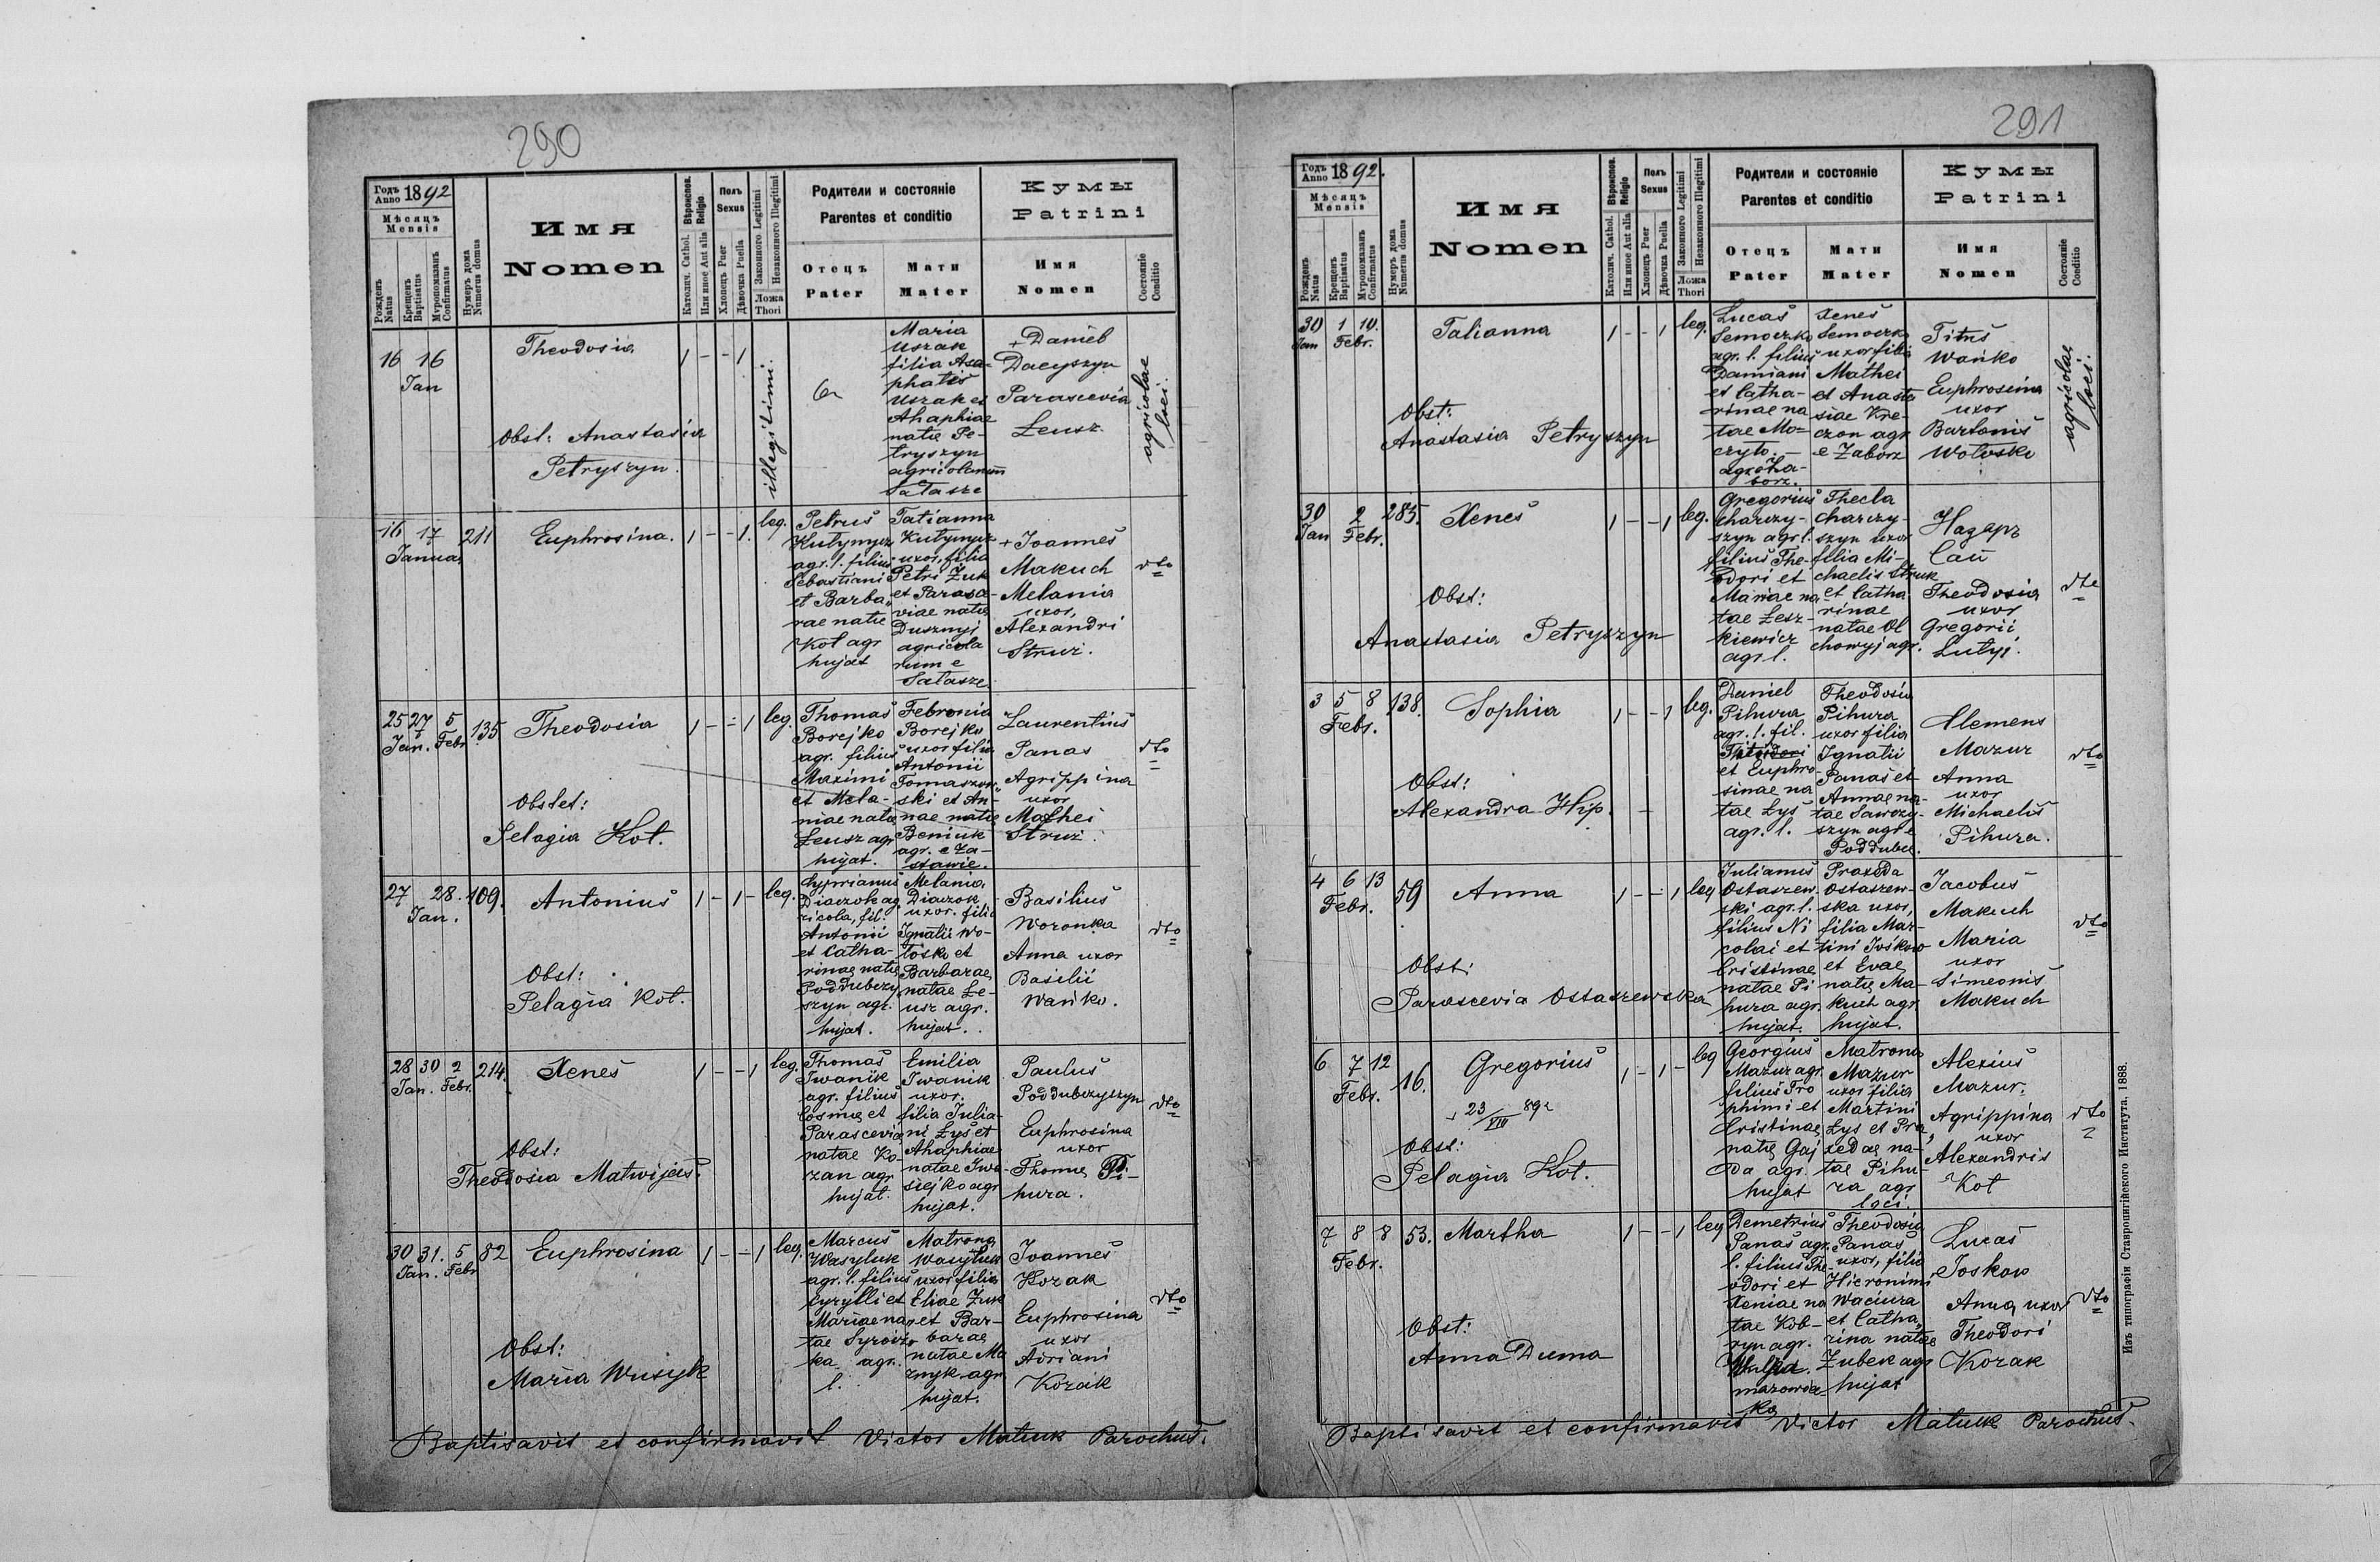 290
Годъ Anno 1892
Мѣсяцъ Mensis
Рожденъ Natus
Крещенъ Baptisatus
Муропомазанъ Confirmatus
Нумеръ дома Numerus domus
Имя
Nomen
Вѣроиспов. Religio
Католич. Cathol.
Или иное Aut alia
Полъ Sexus
Хлопецъ Puer
Дѣвочка Puella
Законного Legitimi
Незаконного Illegitimi
Ложа Thori
Родители и состояніе
Parentes et conditio
Отецъ Pater
Мати Mater
Кумы
Patrini
Имя Nomen
Состояніе Conditio
16 16
Jan
Theodosia
1 - - 1
illegitimi
Maria
Uszak
filia Asa-
phatis
Uszak et
Ahaphiae
natae Pe-
tryszyn
agricolarum
e Sałasze
+ Daniel
Daeyszyn
Parascevia
Leusz
agricolae loci.
Obst: Anastasia
Petryszyn.
16 17
Januar
211
Euphrosina.
1 - - 1.
leg.
Petrus
Kutynycz
agr. l. filius
Sebastiani
et Barba-
rae natae
Kot agr
hujat
Tatianna
Kutynycz
uxor, filia
Petri Żuk
et Parasce-
viae natae
Dusznyj
agricola
rum e
Sałasze.
+ Joannes
Makuch
Melania
uxor
Alexandri
Struz.
dto
25 27 5
Jan. Febr
135
Theodosia
1 - - 1
leg.
Thomas
Borejko
agr. filius
Maximi
et Mela-
niae natae
Leusz agr
hujat.
Febronia
Borejko
uxor filia
Antonii
Tomaszew-
ski et An-
nae natae
Beniuk
agr. e Za-
stawie.
Laurentius
Panas
Agrippina
uxor
Mathei
Struz.
dto
Obstet:
Pelagia Kot.
27 28.
Jan.
109.
Antonius
1 - 1 -
leg.
Cyprianus
Diaczok ag
ricola, fil.
Antonii
et Catha-
rinae natae
Poddubczy
szyn agr.
hujat.
Melania
Diaczok
uxor. filia
Ignatii Wo-
tosk et
Barbarae
natae Le-
usz agr.
hujat.
Basilius
Woronka
Anna uxor
Basilii
Wańko.
dto
Obst:
Pelagia Kot.
28 30 2
Jan. Febr.
214.
Xenes
1 - - 1
leg.
Thomas
Iwanik
agr. filius
Cosmae et
Parasceviae
natae Ko-
zan agr
hujat.
Emilia
Iwanik
uxor.
filia Julia-
ni Łys et
Ahaphiae
natae Iwa-
siejko agr
hujat.
Paulus
Poddubczyszyn
Euphrosina
uxor
Thomae Pi-
hura.
dto
Obst:
Theodosia Matwijas.
30 31. 5
Jan. Febr
82
Euphrosina
1 - - 1
leg.
Marcus
Wasyluk
agr. l. filius
Cyrylli et
Mariae na-
tae Syrowz-
ka agr.
l.
Matrona
Wasyluk
uxor filia
Eliae Żuk
et Bar-
barae
natae Ma
znyk agr
hujat.
Joannes
Kozak
Euphrosina
uxor
Adriani
Kozak
dto
Obst:
Maria Wusyk
Baptisavit et confirmavit Victor Matiuk Parochus.
291
Годъ Anno 1892.
Мѣсяцъ Mensis
Рожденъ Natus
Крещенъ Baptisatus
Муропомазанъ Confirmatus
Нумеръ дома Numerus domus
Имя
Nomen
Вѣроиспов. Religio
Католич. Cathol.
Или иное Aut alia
Полъ Sexus
Хлопецъ Puer
Дѣвочка Puella
Законного Legitimi
Незаконного Illegitimi
Ложа Thori
Родители и состояніе
Parentes et conditio
Отецъ Pater
Мати Mater
Кумы
Patrini
Имя Nomen
Состояніе Conditio
30 1 10.
Jan Febr.
Talianna
1 - - 1
leg.
Lucas
Semoczko
agr. l. filius
Damiani
et Catha-
rinae na
tae Mo-
czyto.
agr. e Za-
borz.
Xenes
Semoczko
uxor filia
Mathei
et Anasta
siae Kre-
czon agr
e Zaborz
Titus
Wańko
Euphrosina
uxor
Bartonis
Wotosko
agricolae loci.
Obst:
Anastasia Petryszyn
30 2
Jan Febr.
285.
Xenes
1 - - 1
leg.
Gregorius
Charzy-
szyn agr l.
filius The-
odori et
Mariae na
tae Lesz-
kiewicz
agr l.
Thecla
Charczy-
szyn uxor
filia Mi-
chaelis Struk
et Catha
rinae
natae Ol
chowyj agr.
Назарь
Сай
Theodosia
uxor
Gregorii
Lutyj.
dto
Obst:
Anastasia Petryszyn
3 5 8
Febr.
138.
Sophia
1 - - 1
leg.
Daniel
Pihura
agr. l. fil.
Theodori
et Euphro-
sinae na
tae Łys
agr. l.
Theodosia
Pihura
uxor filia
Ignatii
Panas et
Annae na-
tae Sawczy-
szyn agr e
Poddubce.
Clemens
Mazur
Anna
uxor
Michaelis
Pihura.
dto
Obst:
Alexandra Hip.
4 6 13
Febr.
59
Anna
1 - - 1
leg
Julianus
Ostaszew-
ski agr. l.
filius Ni
colai et
Cristinae
natae Pi
hura agr.
hujat.
Praxeda
Ostaszew-
ska uxor,
filia Mar-
tini Joskow
et Evae
natae Ma-
kuch agr
hujat.
Jacobus
Makuch
Maria
uxor
Simeonis
Makuch
dto
Obst:
Parascevia Ostaszewska
6 7 12
Febr.
16.
Gregorius
+ 23/VIII 892
1 - 1 -
leg
Georgius
Mazur agr.
filius Tro
phimi et
Cristinae
natae Gaj
da agr.
hujat
Matrona
Mazur
uxor filia
Martini
Łys et Pra
xedae na-
tae Pihu-
ra agr
loci.
Alexius
Mazur.
Agrippina
uxor
Alexandris
Kot
dto
Obst:
Pelagia Kot.
7 8 8
Febr.
53.
Martha
1 - - 1
leg
Demetrius
Panas agr.
l. filius The-
odori et
Xeniae na
tae Kob-
ryn agr.
mazowiec-
ka
Theodosia
Panas
uxor, filia
Hieronimi
Waciura
et Catha,
rina natae
Zubek agr
hujat
Lucas
Joskow
Anna uxor
Theodori
Kozak
dto
Obst:
Anna Duma
Baptisavit et confirmavit Victor Matiuk Parochus.
Изъ типографіи Ставропигійского Института. 1888.